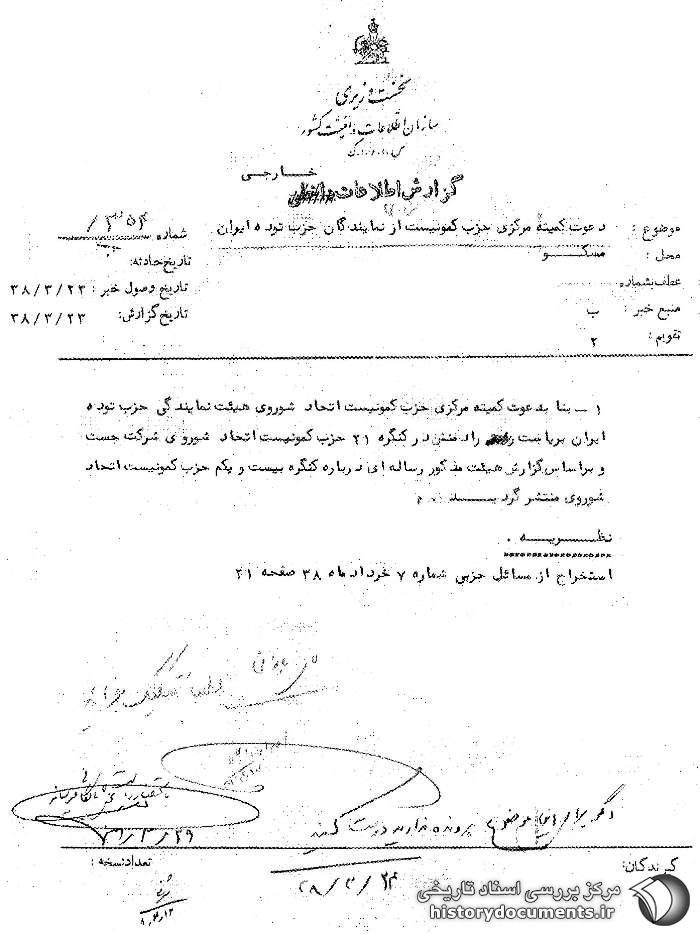 نخست وزیری
سازمان اطلاعات و امنیت کشور
س.ا.و.ا.ک
خارجی
گزارش اطلاعات داخلی
موضوع : دعوت کمیته مرکزی حزب کمونیست از نمایندگان حزب توده ایران
شماره
محل : مسکو
تاریخ حادثه:
عطف بشماره
تاریخ وصول خبر : ۳۸/۳/۲۳
منبع خبر : ب
تاریخ گزارش: ۳۸/۳/۲۳
تقویم : ۲
۱ - بنا بدعوت کمیته مرکزی حزب کمونیست اتحاد شوروی هیئت نمایندگی حزب توده
ایران بریاست رادمنش در کنگره ۲۱ حزب کمونیست اتحاد شوروی شرکت جست
و براساس گزارش هیئت مذکور رساله ای درباره کنگره بیست و یکم حزب کمونیست اتحاد
شوروی منتشر گردید
نظریه .
استخراج از مسائل حزبی شماره ۷ خرداد ماه ۳۸ صفحه ۲۱
اگر برای این موضوع پرونده ندارید درست کنید
گیرندگان:
تعداد نسخه :
مرکز بررسی اسناد تاریخی
historydocuments.ir